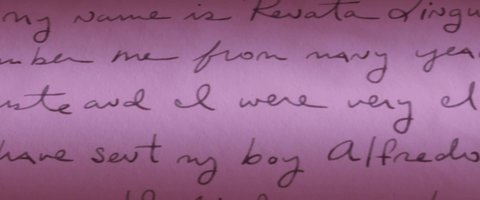 my name is Renata Lingu
mber me from many yea
uste and I were very cl
have sent my boy Alfredo